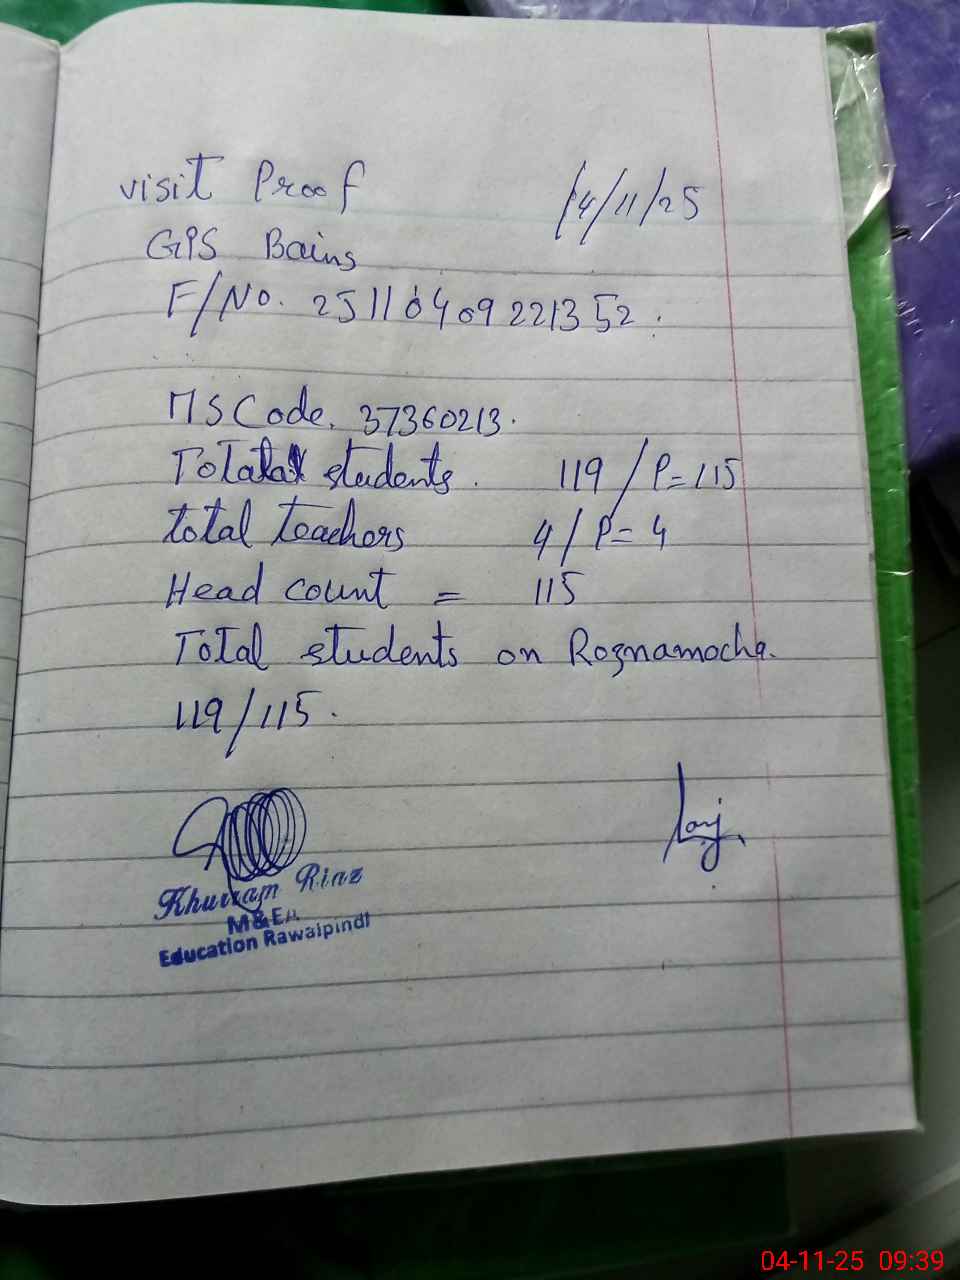 visit Proof /4/11/25
GPS Bains
F/No. 25110409221352.
MS Code. 37360213.
Total students. 119/P=115
total teachers 4/P=4
Head count = 115
Total students on Roznamocha.
119/115.
Khurram Riaz
M&EA
Education Rawalpindi
04-11-25 09:39